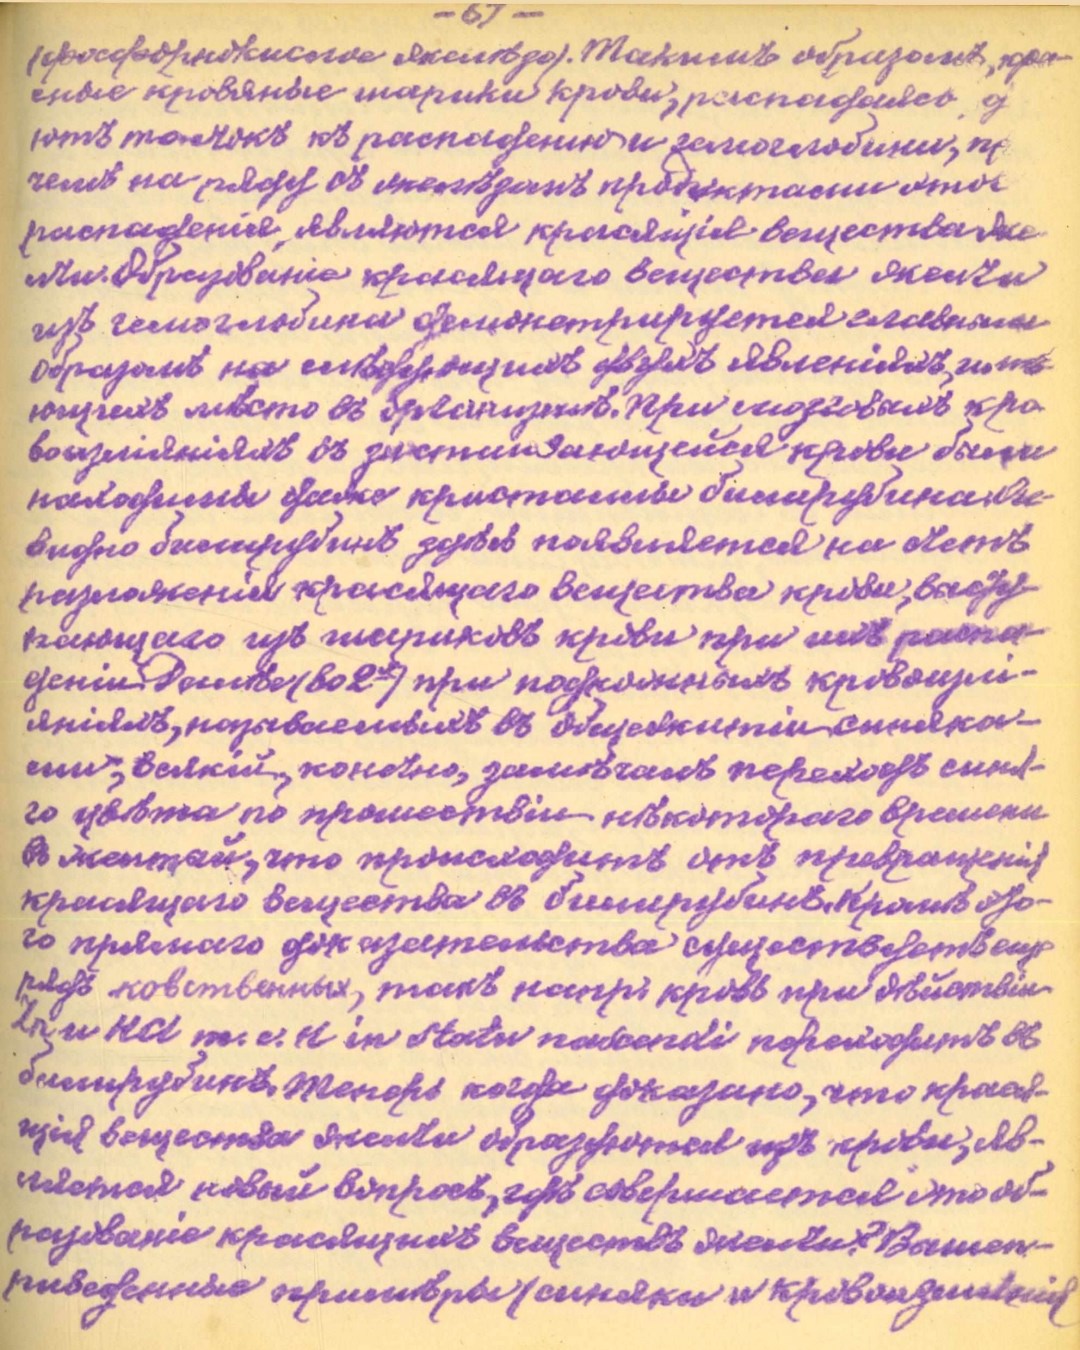 - 67 -
(фосфорнокислое желѣзо). Такимъ образомъ, кра-
сные кровяные шарики крови, распадаясь, д
ютъ толчокъ къ распаденію и гемоглобина, пр
чемъ на ряду съ желѣзомъ продуктами этог
распаденія, являются красящія вещества же
лчи. Образованіе красящаго вещества желчи
изъ гемоглобина демонстрируется главнымъ
образомъ на слѣдующихъ двухъ явленіяхъ, имѣ-
ющихъ мѣсто въ организмѣ. При мозговыхъ кро
воизліяніяхъ въ застаивающейся крови были
находимы даже кристаллы билирубина. Оче-
видно билирубинъ здѣсь появляется на счетъ
разложенія красящаго вещества крови, высту-
пающаго изъ шариковъ крови при ихъ распа-
деніи. Далѣе (во 2хъ) при подкожныхъ кровоизлі-
яніяхъ, называемыхъ въ общежитіи „синяка-
ми", всякій, конечно, замѣчалъ переходъ синя-
го цвѣта по прошествіи нѣкотораго времени
въ желтый, что происходитъ отъ превращенія
красящаго вещества въ билирубинъ. Кромѣ это-
го прямаго доказательства существуетъ еще
рядъ косвенныхъ, такъ напр. кровь при дѣйствіи
Zn и HCl т. е. H in statu nascendi переходитъ въ
билирубинъ. Теперь когда доказано, что крася-
щія вещества желчи образуются изъ крови, яв-
ляется новый вопросъ, гдѣ совершается это об-
разованіе красящихъ веществъ желчи? Вышеп-
риведенные примѣры (синяки и кровоизліянія